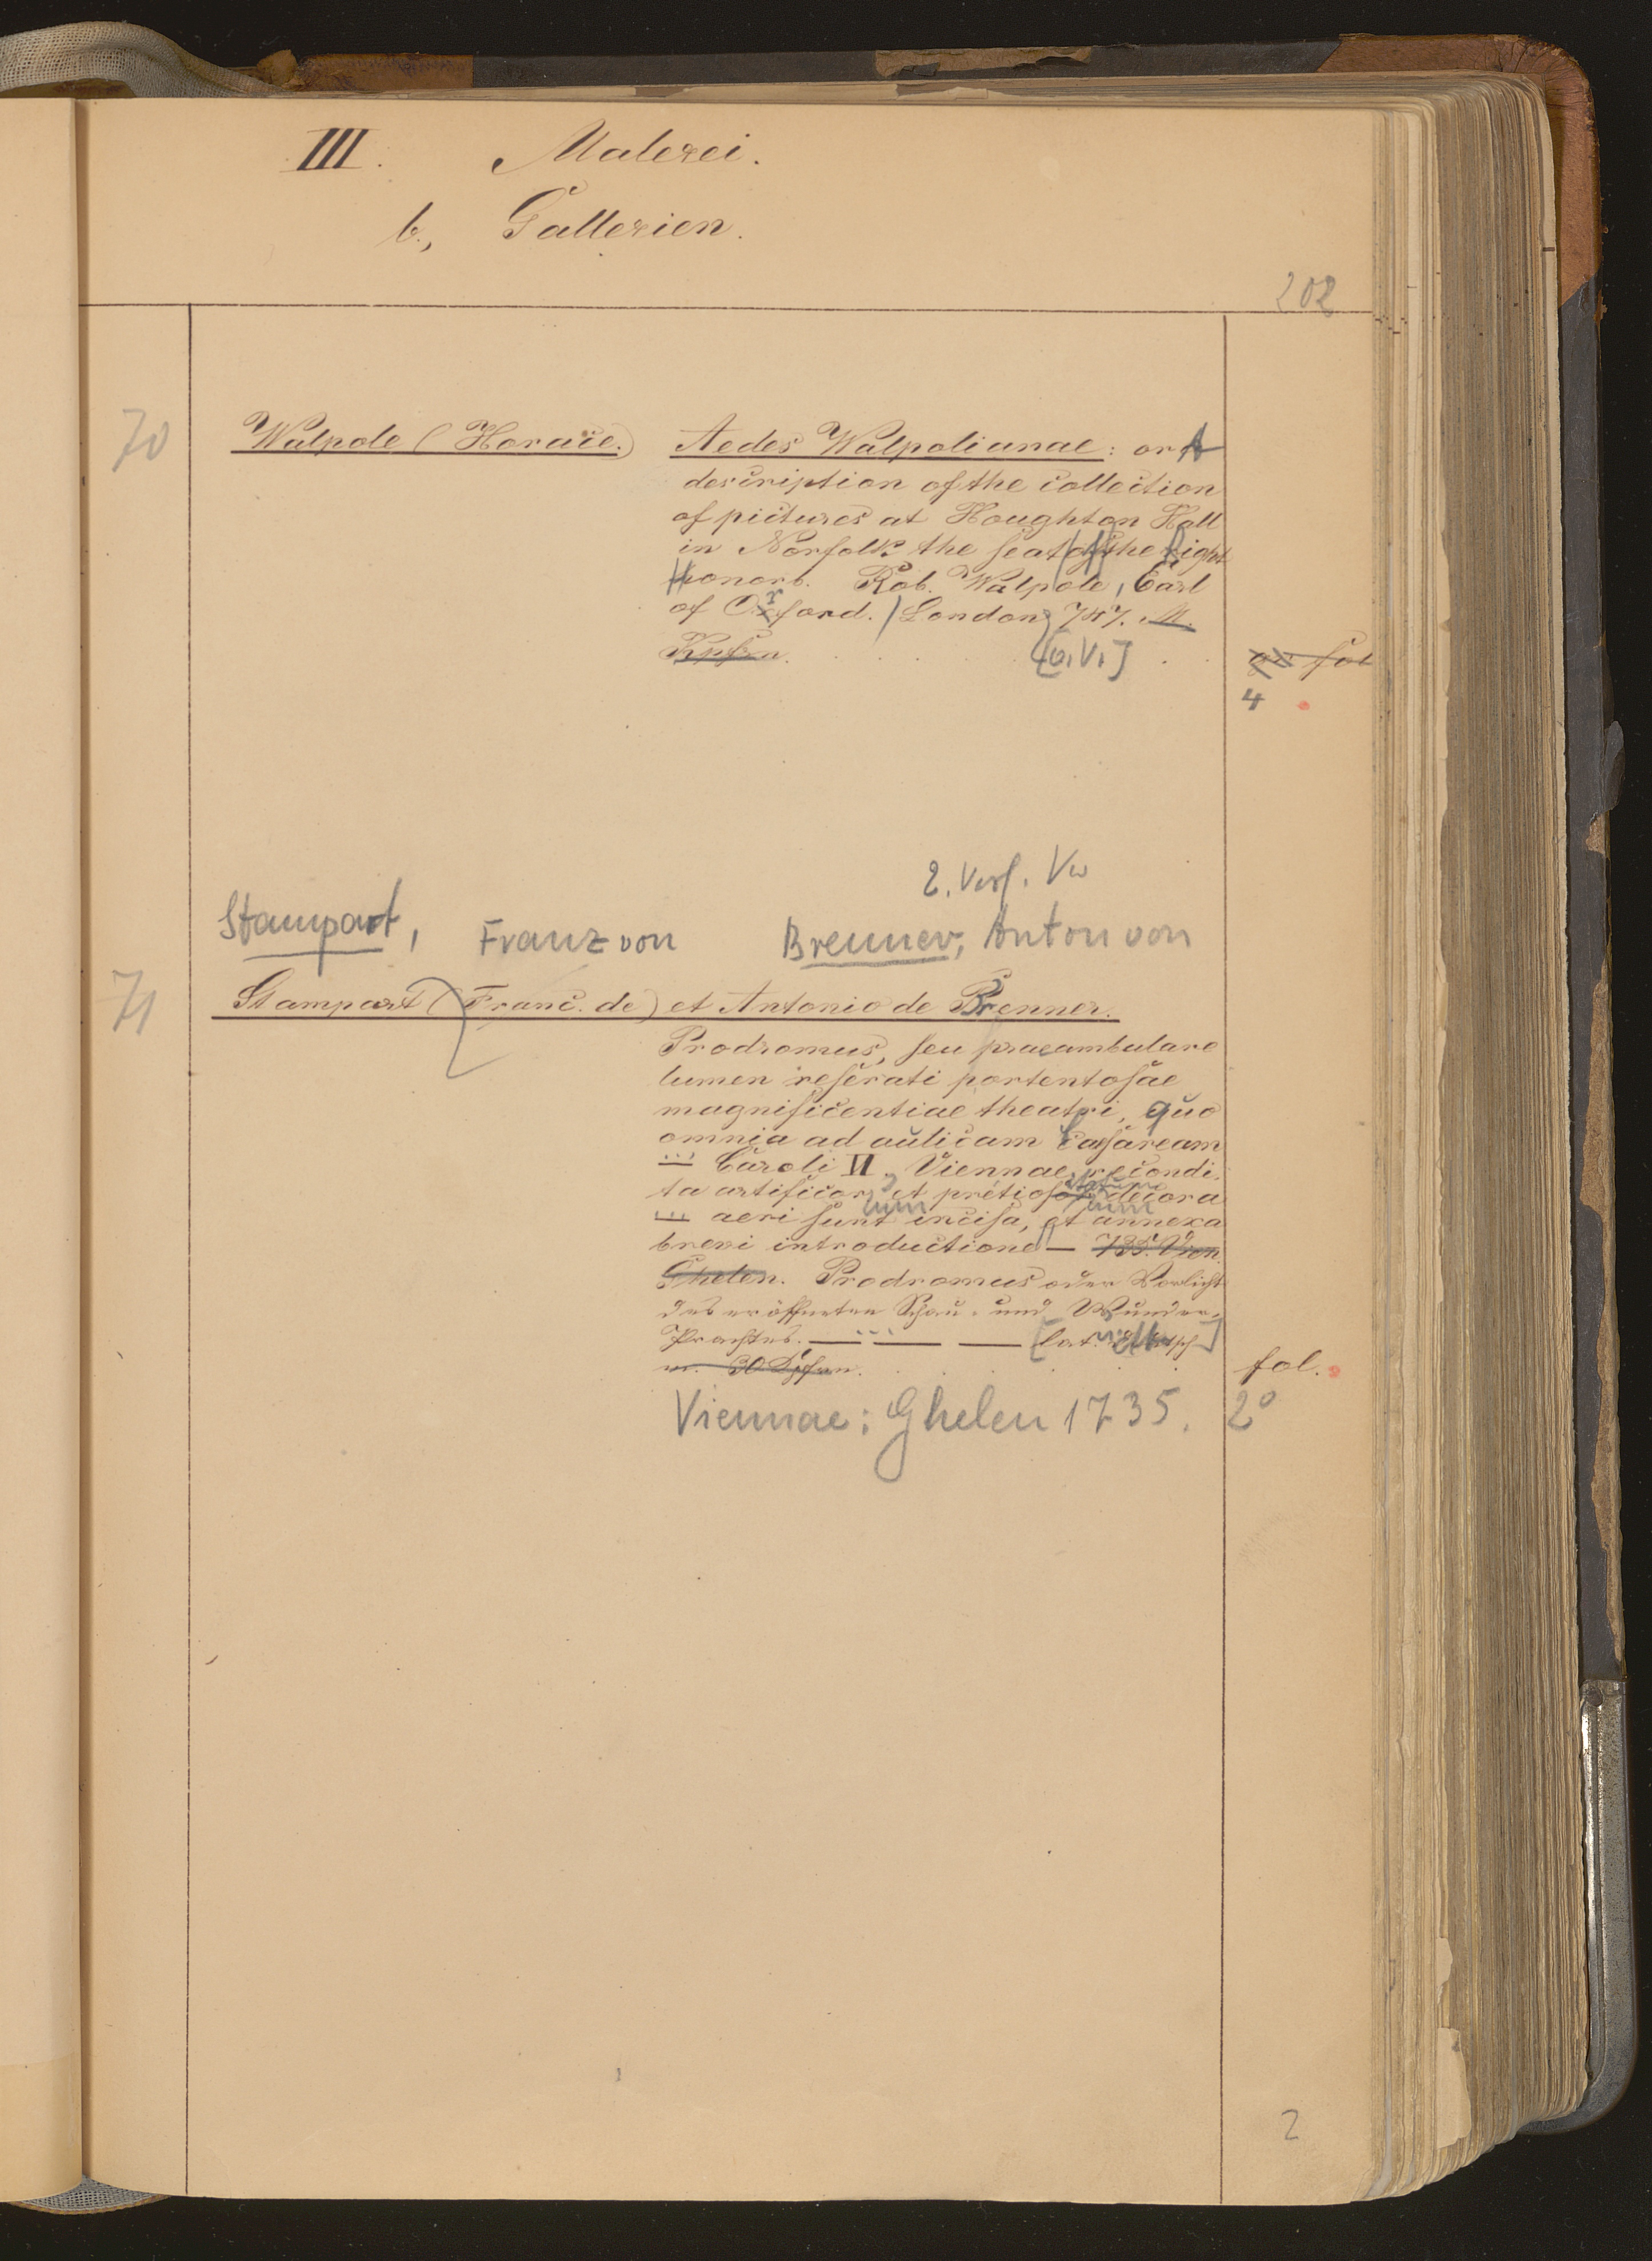 III. Malerei.
b., Gallerien.
202
70
Walpole (Horace.) Aedes Walpolianae: or A
description of the collection
of pictures at Houghton Hall
in Norfolk the seat of the Right
Honorb. Rob. Walpole, Earl
of Orford. / London, 747. M.
Kpfrn. [o.V.] gr. fol
4
2. Verf. Vw
Stampart, Franz von Brenner, Anton von
71
Stampart (Franc. de) et Antonio de Brenner.
Prodromus, seu praeambulare
lumen reserati portentosae
magnificentiae theatri, quo
omnia ad aulicam Caesaream
... Caroli VI. Viennae recondi-
ta artificiorum et pretiositatum decora
... aeri sunt incisa, cum annexa
brevi introductione — 735. Vien.
Ghelen. Prodromus oder Vorlicht
des eröffneten Schau- und Wunder-
Prachtes. — ... — — [lat. u. dtsch]
m. 30 Kpfrn. fol.
Viennae: Ghelen 1735. 2°
2